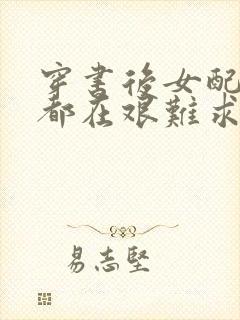 穿書後女配
都在艱難求
易志堅